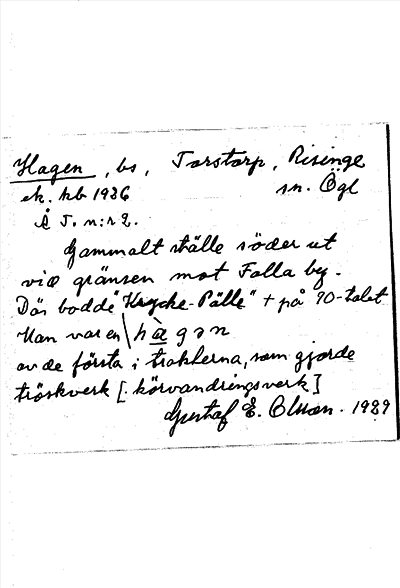 Hagen, bs, Torstorp, Risinge
ek. kb 1936 sn. Ögl
Å T. n:r 2.
Gammalt ställe söder ut
vid gränsen mot Falla by.
Där bodde "Krycke-Pälle" + på 90-talet
Han var en hàgən
av de första i trakterna, som gjorde
tröskverk [. körvandringsverk]
Gustaf E. Olsson. 1989